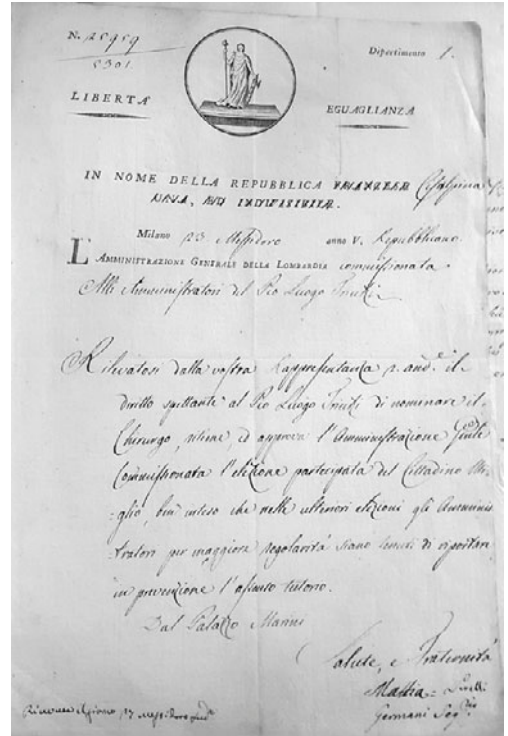 N. 25959
5301
Dipartimento 1.
LIBERTA
EGUAGLIANZA
IN NOME DELLA REPUBBLICA FRANCESE Cisalpina
UNA, ED INDIVISIBILE.
Milano 23 Messidoro anno V. Repubblicano
L'AMMINISTRAZIONE GENERALE DELLA LOMBARDIA commissionata
Alli Amministratori del Pio Luogo Triulzi
Rilevatosi dalla vostra Rappresentanza il
diritto spettante al Pio Luogo Triulzi di nominare il
Chirurgo, ritiene, ed approva l'Amministrazione
Commissionata l'elezione partecipata del Cittadino
glio, ben inteso che nelle ulteriori elezioni gli Amminis
tratori per maggiore regolarità siano tenuti di riportare
in prevenzione l'assenso tutorio.
Dal Palazzo Marini
Salute, e Fraternità
Mattia
Germani Seg.rio
Ricevuta il giorno 27 messidoro